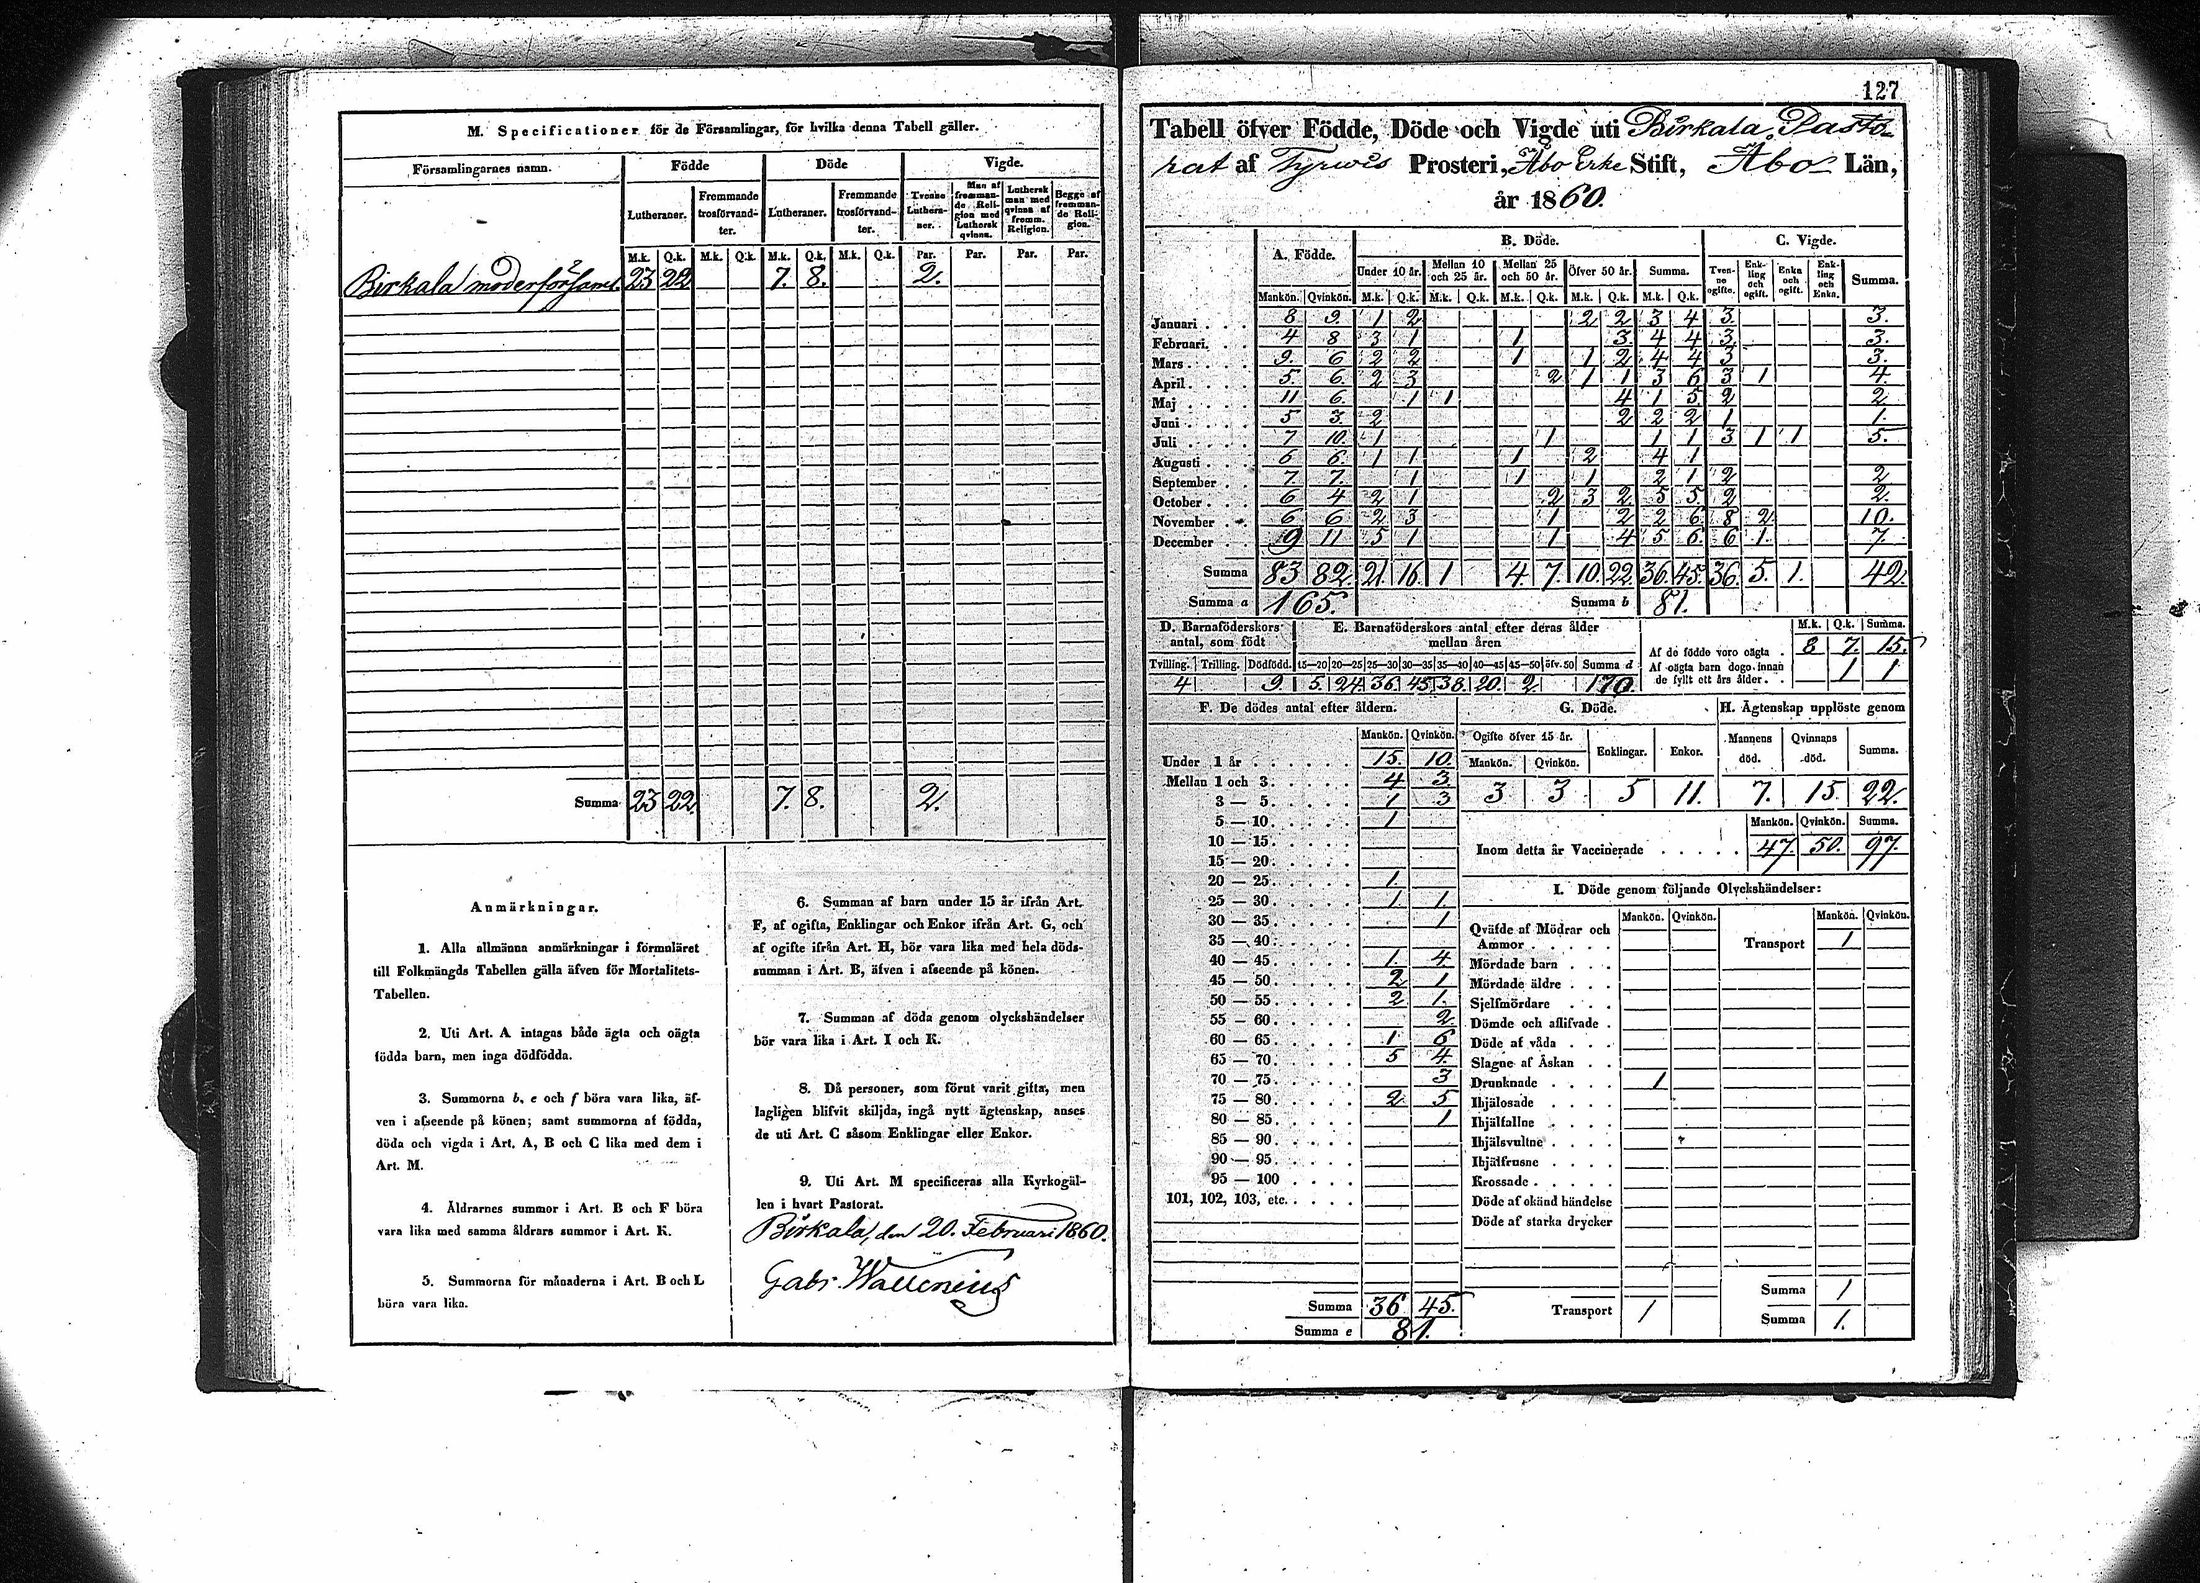 M. Specificationer för de Församlingar, för hvilka denna Tabell gäller.
Församlingarnes namn. Födde Döde Vigde.
Lutheraner. Fremmande trosförvandter. Lutheraner. Fremmande trosförvandter. Tvenne Lutheraner. Man af fremmande Religion med Luthersk qvinna. Luthersk man med qvinna af fremm. Religion. Begge af fremmande Religion.
M.k. Q.k. M.k. Q.k. M.k. Q.k. M.k. Q.k. Par. Par. Par. Par.
Birkala moderförsaml. 23 22 7. 8. 2.
Summa 23 22 7. 8. 2.
Anmärkningar.
1. Alla allmänna anmärkningar i formuläret
till Folkmängds Tabellen gälla äfven för Mortalitets-
Tabellen.
2. Uti Art. A intagas både ägta och oägta
födda barn, men inga dödfödda.
3. Summorna b, e och f böra vara lika, äf-
ven i afseende på könen; samt summorna af födda,
döda och vigda i Art. A, B och C lika med dem i
Art. M.
4. Åldrarnes summor i Art. B och F böra
vara lika med samma åldrars summor i Art. K.
5. Summorna för månaderna i Art. B och L
böra vara lika.
6. Summan af barn under 15 år ifrån Art.
F, af ogifta, Enklingar och Enkor ifrån Art. G, och
af ogifte ifrån Art. H, bör vara lika med hela döds-
summan i Art. B, äfven i afseende på könen.
7. Summan af döda genom olyckshändelser
bör vara lika i Art. I och K.
8. Då personer, som förut varit gifta, men
lagligen blifvit skiljda, ingå nytt ägtenskap, anses
de uti Art. C såsom Enklingar eller Enkor.
9. Uti Art. M specificeras alla Kyrkogäl-
len i hvart Pastorat.
Birkala, den 20. Februari 1860.
Gabr. Wallenius
127
Tabell öfver Födde, Döde och Vigde uti Birkala Pasto-
rat af Tyrwis Prosteri, Åbo Erke Stift, Åbo Län,
år 1860.
A. Födde. B. Döde. C. Vigde.
Under 10 år. Mellan 10 och 25 år. Mellan 25 och 50 år. Öfver 50 år. Summa. Tvenne ogifte. Enkling och ogift. Enka och ogift. Enkling och Enka. Summa.
Mankön. Qvinkön. M.k. Q.k. M.k. Q.k. M.k. Q.k. M.k. Q.k. M.k. Q.k.
Januari 8 9. 1 2 2 2 3 4 3. 3.
Februari. 4 8 3 1 1 3. 4 4 3. 3.
Mars 9. 6 2 2 1 1 2 4 4 3 3.
April 5. 6. 2 3 2 1 1 3 6 3 1 4.
Maj 11 6. 1 1 4 1 5 2 2
Juni 5 3. 2 2 2 2 1 1.
Juli 7 10. 1 1 1 1 3 1 1 5.
Augusti 6 6. 1 1 1 2 4 1
September 7. 7. 1 1 1 2 1 2 2
October 6 4 2 1 2 3 2 5 5 2 2.
November 6 6 2 3 1 2 2 6 8 2 10.
December 9 11 5 1 1 4 5 6 6 1. 7.
Summa 83 82. 21 16. 1 4. 7. 10. 22. 36. 45. 36. 5. 1. 42.
Summa a 165. Summa b 81.
D. Barnaföderskors antal, som födt
E. Barnaföderskors antal efter deras ålder mellan åren
Tvilling. Trilling. Dödfödd. 15—20 20—25 25—30 30—35 35—40 40—45 45—50 öfv. 50 Summa d
4 9. 5. 24. 36. 45. 38. 20. 2. 170.
M.k. Q.k. Summa.
Af de födde voro oägta 8 7. 15.
Af oägta barn dogo innan
de fyllt ett års ålder 1 1
F. De dödes antal efter åldern.
Mankön. Qvinkön.
Under 1 år 15. 10.
Mellan 1 och 3 4 3.
3 — 5 1 3
5 — 10 1
10 — 15
15 — 20
20 — 25 1.
25 — 30 1 1
30 — 35 1
35 — 40
40 — 45 1. 4.
45 — 50 2 1
50 — 55 2 1.
55 — 60 2.
60 — 65 1 6
65 — 70 5 4.
70 — 75 3
75 — 80 2 5
80 — 85 1
85 — 90
90 — 95
95 — 100
101, 102, 103, etc.
Summa 36 45.
Summa e 81.
G. Döde. H. Ägtenskap upplöste genom
Ogifte öfver 15 år. Enklingar. Enkor. Mannens död. Qvinnans död. Summa.
Mankön. Qvinkön.
3 3 5 11. 7. 15. 22.
Mankön. Qvinkön. Summa.
Inom detta år Vaccinerade 47. 50. 97.
I. Döde genom följande Olyckshändelser:
Mankön. Qvinkön. Mankön. Qvinkön.
Qväfde af Mödrar och
Ammor Transport 1
Mördade barn
Mördade äldre
Sjelfmördare
Dömde och aflifvade
Döde af våda
Slagne af Åskan
Drunknade 1
Ihjälosade
Ihjälfallne
Ihjälsvultne
Ihjälfrusne
Krossade
Döde af okänd händelse
Döde af starka drycker
Summa 1
Transport 1 Summa 1.